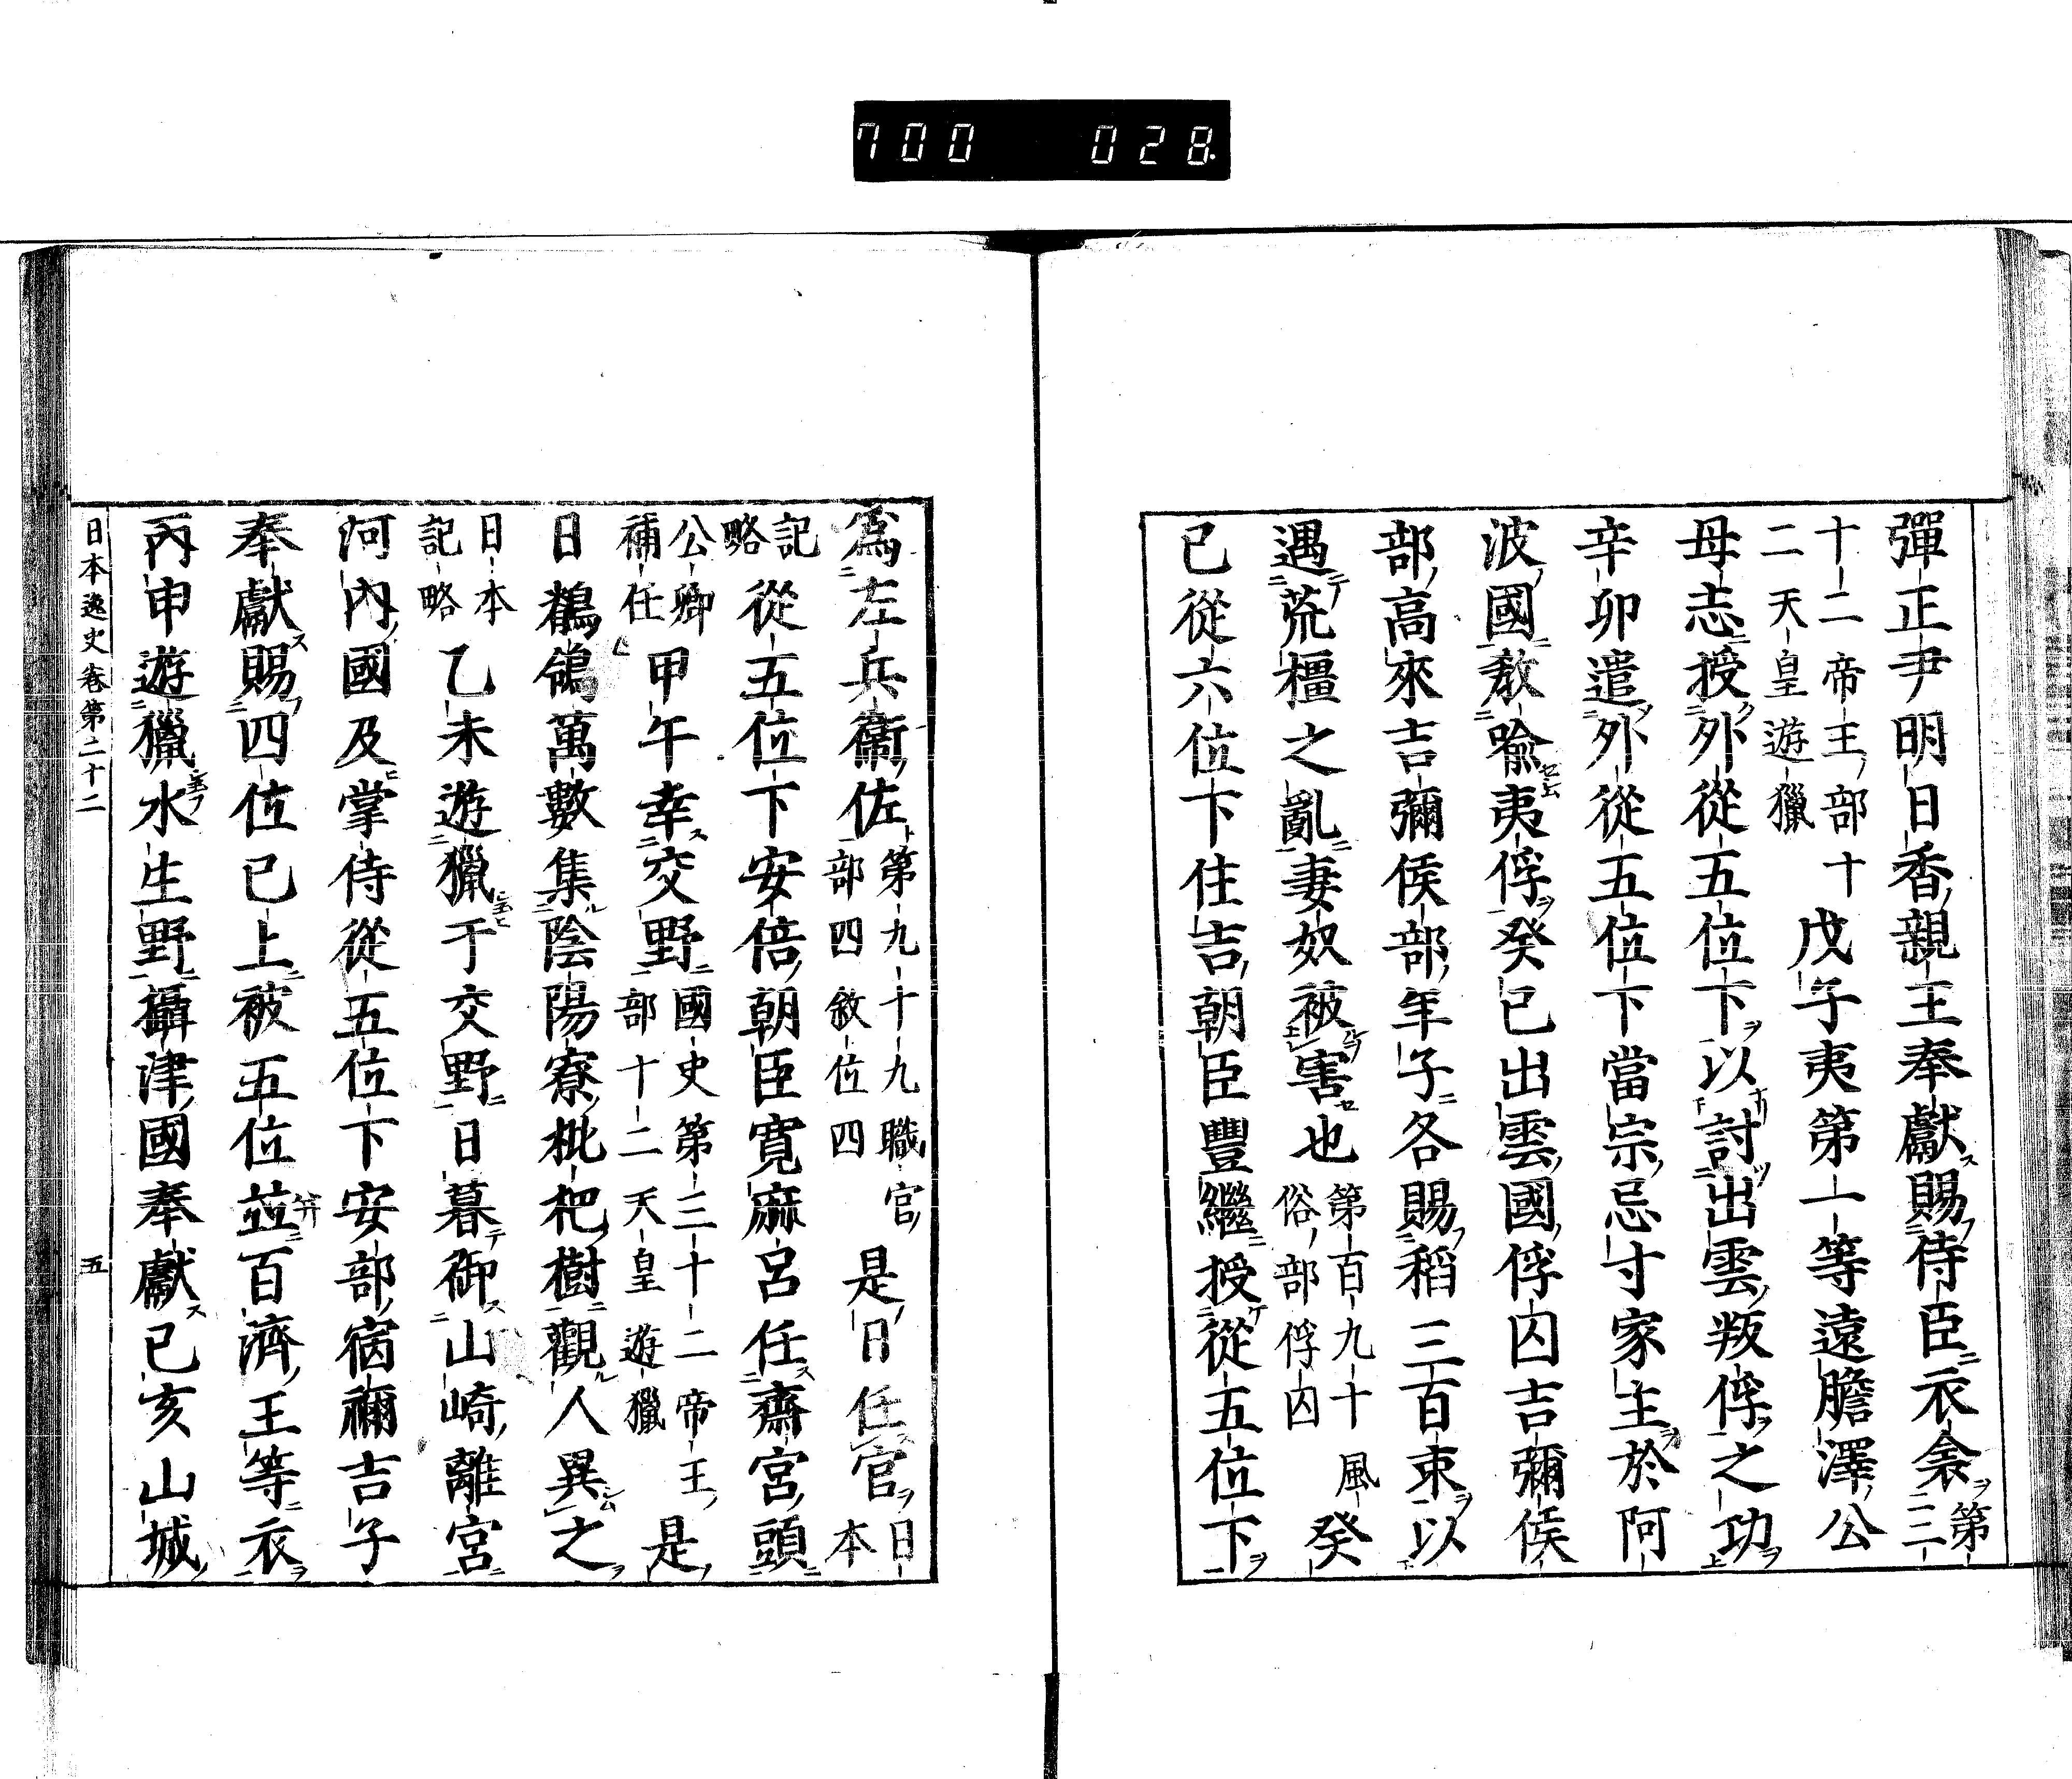 700 028
彈正尹明日香親王奉獻賜侍臣衣衾第三
十二帝王部十二天皇遊獵戊子夷第一等遠膽澤公
母志授外從五位下以討出雲叛俘之功
辛卯遣外從五位下當宗忌寸家主於阿
波國教喩夷俘癸巳出雲國俘囚吉彌侯
部高來吉彌侯部年子各賜稻三百束以
遇荒橿之亂妻奴被害也第百九十風俗部俘囚癸
巳從六位下住吉朝臣豐繼授從五位下
爲左兵衞佐第九十九職官部四敘位四是日任官日本
記略從五位下安倍朝臣寛麻呂任齋宮頭
公卿補任甲午幸交野國史第三十二帝王部十二天皇遊獵是
日鵲鴿萬數集陰陽寮枇杷樹觀人異之
日本記略乙未遊獵于交野日暮御山崎離宮
河內國及掌侍從五位下安部宿禰吉子
奉獻賜四位已上被五位並百濟王等衣
丙申遊獵水生野攝津國奉獻己亥山城
日本逸史卷第二十二 五